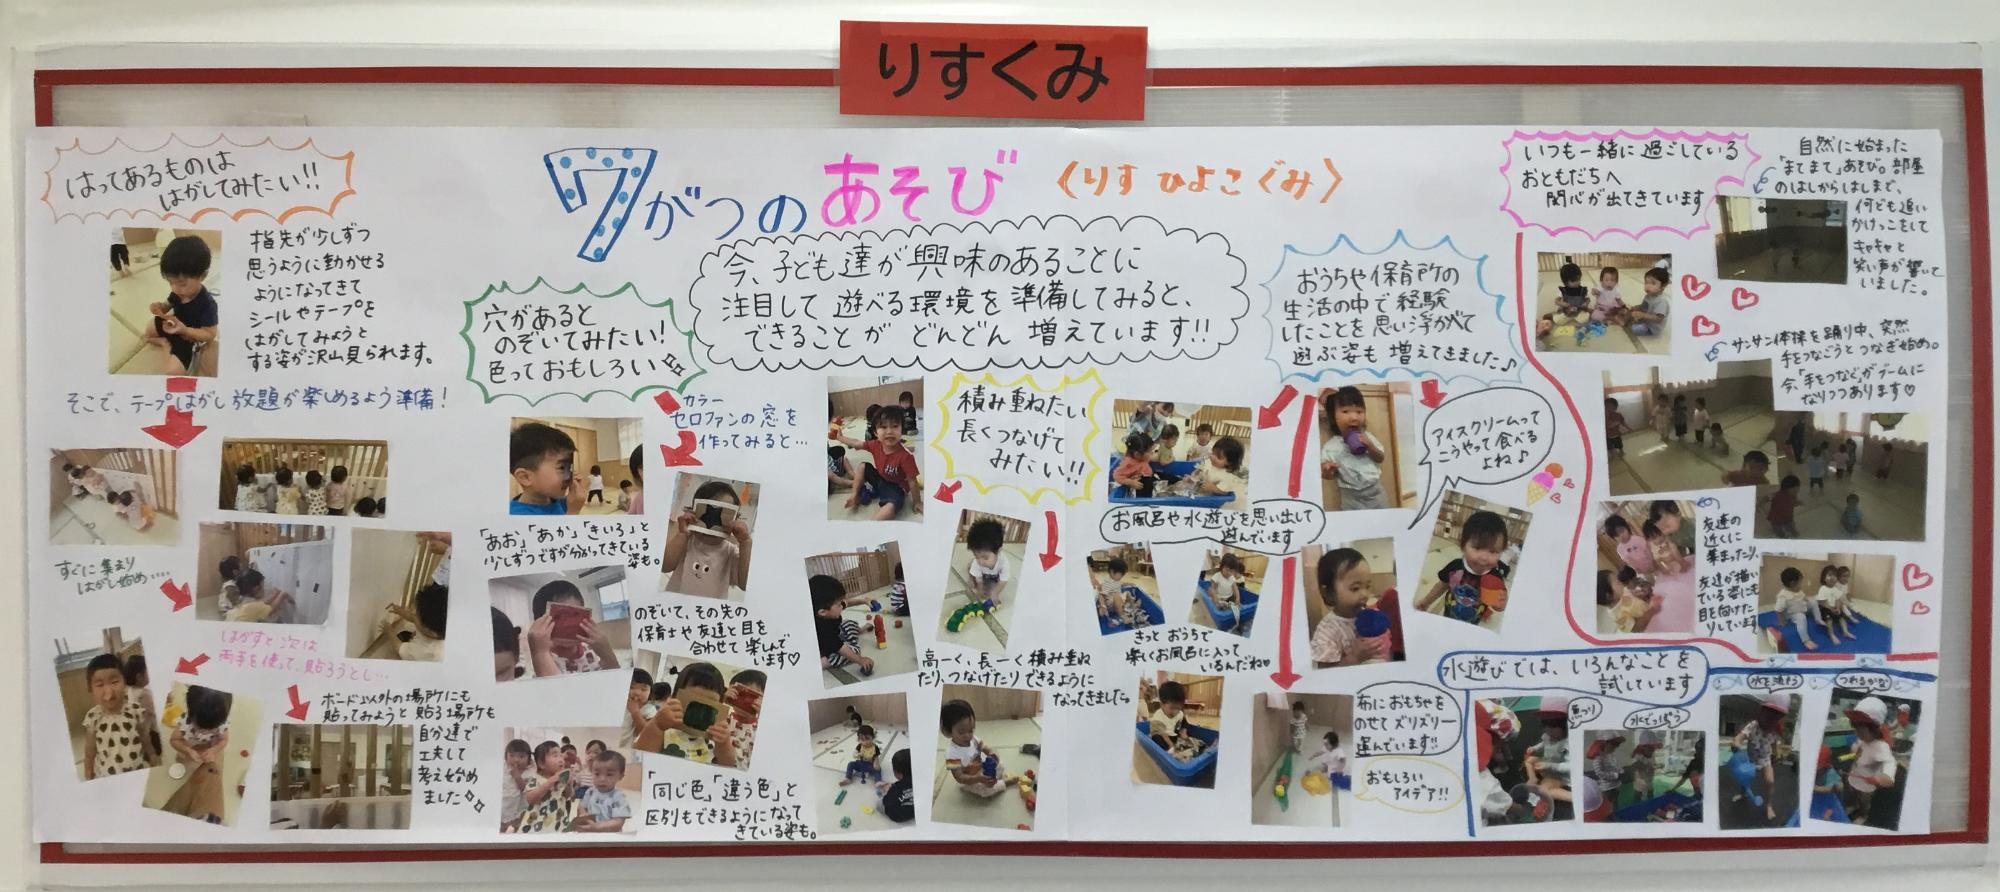 りすくみ
7がつのあそび
〈りす ひよこぐみ〉
今、子ども達が興味のあることに
注目して遊べる環境を準備してみると、
できることが どんどん 増えています!!
はってあるものは
はがしてみたい!!
指先が少しずつ
思うように動かせる
ようになってきて
シールやテープを
はがしてみようと
する姿が沢山見られます。
そこで、テープはがし放題が楽しめるよう準備!
すぐに集まり
はがし始め……
はがすと次は
両手を使って、貼ろうとし…
ボード以外の場所にも
貼ってみようと貼る場所も
自分達で
工夫して
考え始め
ました
穴があると
のぞいてみたい!
色っておもしろい
カラー
セロファンの窓を
作ってみると…
「あお」「あか」「きいろ」と
少しずつですが分かってきている
姿も。
のぞいて、その先の
保育士や友達と目を
合わせて楽しんで
います♡
「同じ色」「違う色」と
区別もできるようになって
きている姿も。
積み重ねたい
長くつなげて
みたい!!
高ーく、長ーく積み重ね
たり、つなげたりできるように
なってきました。
おうちや保育所の
生活の中で経験
したことを思い浮かべて
遊ぶ姿も増えてきました♪
お風呂や水遊びを思い出して
遊んでいます
きっと おうちで
楽しくお風呂に入って
いるんだね♡
アイスクリームって
こうやって食べる
よね♪
布におもちゃを
のせてズリズリー
運んでいます!!
おもしろい
アイデア!!
いつも一緒に過ごしている
おともだちへ
関心が出てきています
自然に始まった
「まてまて」あそび。部屋
のはしからはしまで、
何ども追い
かけっこをして
キャキャと
笑い声が響いて
いました。
サンサン体操を踊り中、突然
手をつなごうとつなぎ始め。
今、「手をつなぐ」がブームに
なりつつあります♡
友達の
近くに
集まったり、
友達が描い
ている姿にも
目を向けた
りしています
水遊びでは、いろんなことを
試しています
魚つり
水でっぽう
水を流そう
つれるかな